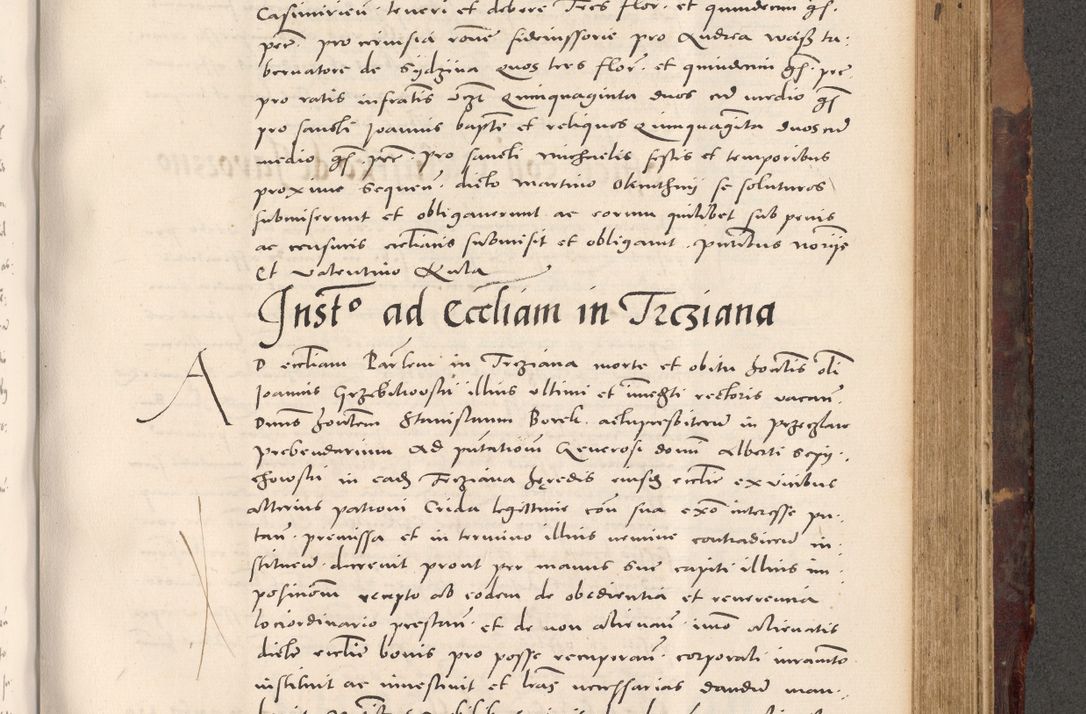 Casimirien. teneri et debere Tres flor. et quindecim gs.
per. pro cerevisia rone fideiussorie pro Andrea Wasz ta-
bernatore de Sydzina Quos tres flor. et quindecim gs. per
pro ratis infratis Quinquaginta duos cum medio gs
pro sancti Joannis bapte et reliquos Quinquaginta duos cum
medio gs. per. pro sancti Michaelis festis et temporibus
proxime sequen. dicto Martino se soluturos
submiserunt et obligaverunt ac eorum quilibet sub penis
ac censuris ecclianis submisit et obligavit. pntibus
Et Valentino Ruta
Instº ad Eccliam in Trcziana
AD eccliam Parlem in Trcziana morte et obitu honelis oli
Joannis Grzebikowskii illius ultimi et immedti rectoris vacan.
Dnus honlem Stanislaum Borek. actu presbiterum in
prebendarium Ad pntationem Generosi domini Alberti Scipi-
chowskii in eadem Trcziana heredis eiusdem ecclie ex viribus
alterius patroni Crida legittime con sua exo interesse pu-
tan. premissa et in termino illius nemine contradicen in-
stituen. decrevit prout per manus sue capiti illius im-
posinonem recepto ab eodem de obedientia et reverentia
loci ordinario prestan. et de non alienan. imo alienatis
dicte ecclie bonis pro posse recuperan. corporali iuramto
instituit ac investivit et lras necessarias dandum man-